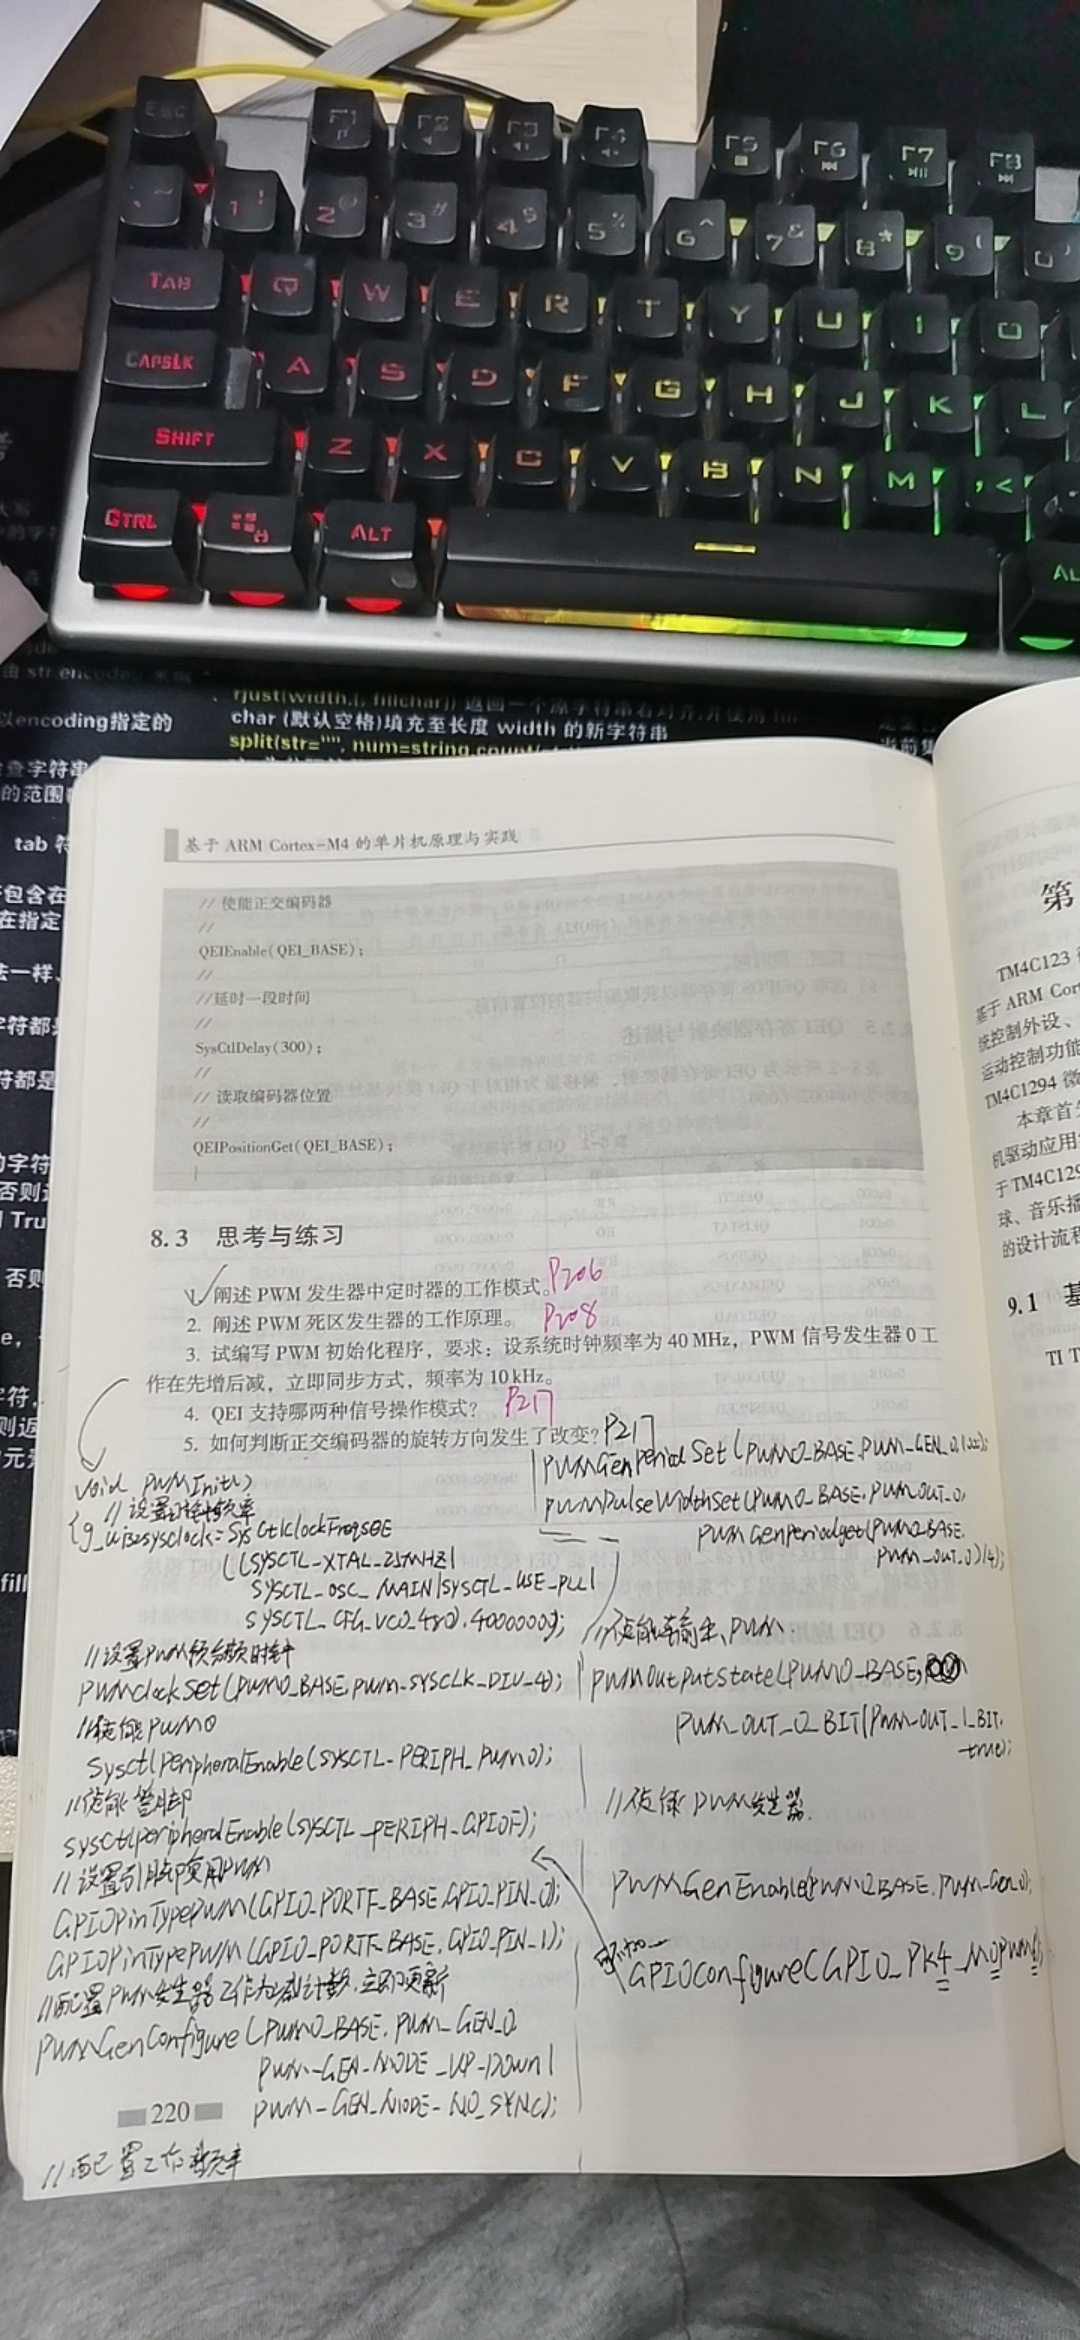 Esc F1 F2 F3 F4 F5 F6 F7 F8
~ 1! 2@ 3# 4$ 5% 6^ 7& 8* 9(
TAB Q W E R T Y U I O
CAPSLK A S D F G H J K L
SHIFT Z X C V B N M ,<
CTRL ALT AL
由 str.encode
以encoding指定的
rjust(width,[, fillchar]) 返回一个原字符串右对齐,并使用
char (默认空格)填充至长度 width 的新字符串
split(str="", num=string.count
查字符串
的范围
tab 符
包含在
在指定
法一样、
字符都
符都是
的字符
否则
Tru
否则
基于 ARM Cortex-M4 的单片机原理与实践
// 使能正交编码器
//
QEIEnable(QEI_BASE);
//
//延时一段时间
//
SysCtlDelay(300);
//
// 读取编码器位置
//
QEIPositionGet(QEI_BASE);
8.3 思考与练习
1. 阐述 PWM 发生器中定时器的工作模式。P206
2. 阐述 PWM 死区发生器的工作原理。 P208
3. 试编写 PWM 初始化程序，要求：设系统时钟频率为 40 MHz，PWM 信号发生器 0 工
作在先增后减，立即同步方式，频率为 10 kHz。
4. QEI 支持哪两种信号操作模式？ P217
5. 如何判断正交编码器的旋转方向发生了改变？P217
void PWMInit()
// 设置时钟频率
{g_ui32sysclock=SysCtlClockFreqSet
((SYSCTL_XTAL_25MHZ|
SYSCTL_OSC_MAIN|SYSCTL_USE_PLL|
SYSCTL_CFG_VCO_480),40000000);
//设置PWM预分频时钟
PWMClockSet(PWM0_BASE,PWM_SYSCLK_DIV_4);
//使能PWM0
SysctlPeripheralEnable(SYSCTL_PERIPH_PWM0);
//使能管脚
SysCtlPeripheralEnable(SYSCTL_PERIPH_GPIOF);
// 设置引脚复用PWM
GPIOPinTypePWM(GPIO_PORTF_BASE,GPIO_PIN_0);
GPIOPinTypePWM(GPIO_PORTF_BASE,GPIO_PIN_1);
//配置PWM发生器工作为减计数,立即更新
PWMGenConfigure(PWM0_BASE,PWM_GEN_0
PWM_GEN_MODE_UP_DOWN|
PWM_GEN_MODE_NO_SYNC);
220
//配置工作频率
PWMGenPeriodSet(PWM0_BASE,PWM_GEN_0,
PWMPulseWidthSet(PWM0_BASE,PWM_OUT_0,
PWMGenPeriodget(PWM0_BASE,
PWM_OUT_0)/4);
//使能输出PWM
PWMOutputState(PWM0_BASE,
PWM_OUT_0_BIT|PWM_OUT_1_BIT,
true);
//使能PWM发生器.
PWMGenEnable(PWM0BASE,PWM_Gen_0);
GPIOConfigure(GPIO_PK4_M0PWM
第
TM4C123
基于 ARM Cor
统控制外设、
运动控制功能
TM4C1294 微
本章首
机驱动应用
于 TM4C129
球、音乐播
的设计流程
9.1 基
TI T